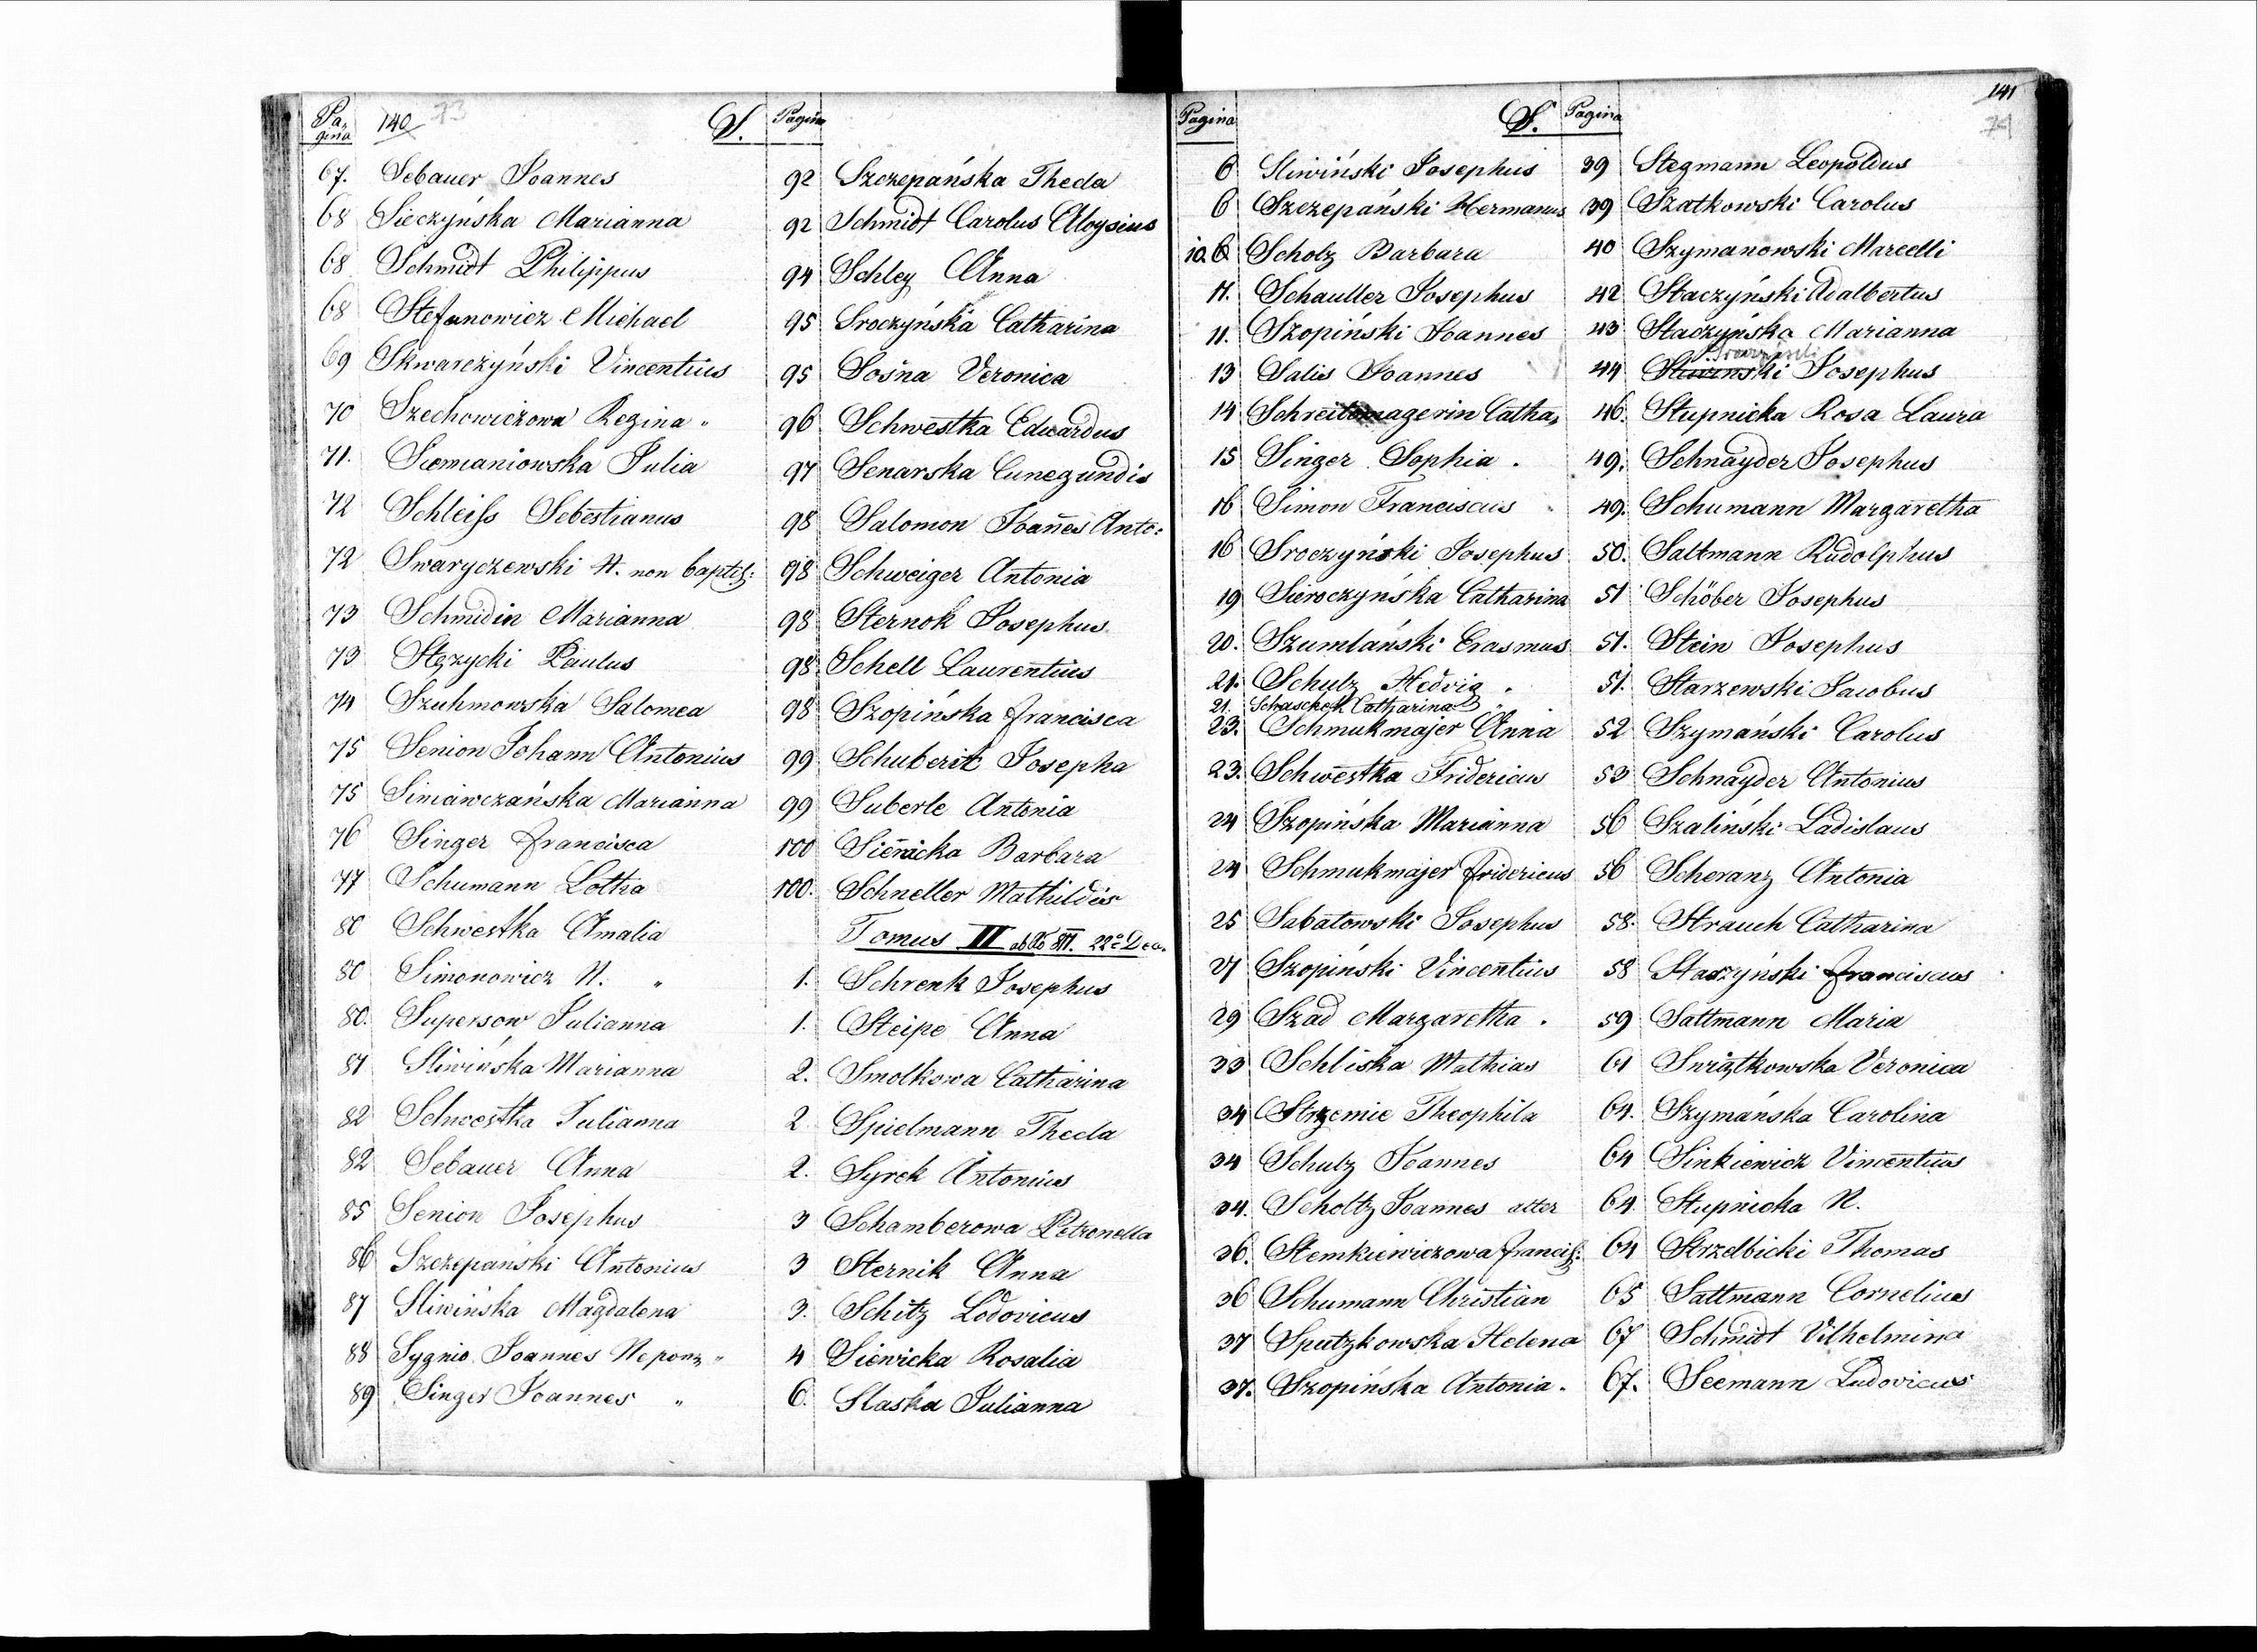 Pagina
140
73
S.
67. Sebauer Joannes
68 Sieczyńska Marianna
68 Schmidt Philippus
68 Stefanowicz Michael
69 Skwarczyński Vincentius
70 Szechowiczowa Regina "
71. Siemianiowska Julia
72 Schleiss Sebestianus
72 Swaryczewski N. non baptis:
73 Schmidin Marianna
73 Stęzycki Paulus
74 Szuhmowska Salomea
75 Senion Johann Antonius
75 Simiawczańska Marianna
76 Singer Francisca
77 Schumann Lotha
80 Schwestka Amalia
80 Simonowicz N. "
80. Supersow Julianna
81 Sliwińska Marianna
82 Schwestka Julianna
82 Sebauer Anna
85 Senion Josephus
86 Szczepański Antonius
87 Sliwińska Magdalena
88 Sygnio Joannes Nepom "
89 Singer Joannes "
Pagina
92 Szczepańska Thecla
92 Schmidt Carolus Aloysius
94 Schley Anna
95 Sroczyńska Catharina
95 Sośna Veronica
96 Schwestka Eduardus
97 Senarska Cunegundis
98 Salomon Joañes Anto:
98 Schweiger Antonia
98 Sternok Josephus
98 Schell Laurentius
98 Szopińska Francisca
99 Schuberit Josepha
99 Suberle Antonia
100 Sieńicka Barbara
100. Schneller Mathildis
Tomus II 22a Dec.
1. Schrenk Josephus
1. Steipe Anna
2. Smolkowa Catharina
2 Spielmann Thecla
2. Syrek Antonius
3 Schamberowa Petronella
3 Sternik Anna
3. Schitz Lodovicus
4 Siewicka Rosalia
6. Slaska Julianna
Pagina
S.
6 Sliwiński Josephus
6 Szczepański Hermanus
10. Scholz Barbara
11. Schauller Josephus
11. Szopiński Joannes
13 Salis Joannes
14 Catha,
15 Singer Sophia .
16 Simon Franciscus
16 Sroczyński Josephus
19 Sieroczyńska Catharina
20. Szumlański Erasmus
21. Schulz Hedvig .
21. Schaschek Catharina
23. Schmukmajer Anna
23. Schwestka Fridericus
24 Szopińska Marianna
24 Schmukmajer Fridericus
25 Sabatowski Josephus
27 Szopiński Vincentius
29 Szad Margaretha .
33 Schliska Mathias
34 Strzemie Theophila
34 Schulz Joannes
34. Scholtz Joannes alter
36. Stemkiewiczowa Francis:
36 Schumann Christian
37 Sputzkowska Helena
37. Szopińska Antonia .
Pagina
141
74
39 Stegmann Leopoldus
39 Szatkowski Carolus
40 Szymanowski Marcelli
42 Staczyński Adalbertus
43 Staczyńska Marianna
Sroczyński
44 Sliwinski Josephus
46. Stupnicka Rosa Laura
49. Schnayder Josephus
49. Schumann Margaretha
50. Saltmann Rudolphus
51 Schöber Josephus
51. Stein Josephus
51. Starzewski Jacobus
52 Szymański Carolus
53 Schnayder Antonius
56 Szaliński Ladislaus
56 Scheranz Antonia
58. Strauch Catharina
58 Staszyński Franciscus
59 Sattmann Maria
61 Swiątkowska Veronica
64. Szymańska Carolina
64 Sinkiewicz Vincentius
64. Stupnicka N.
64 Strzelbicki Thomas
65 Sattmann Cornelius
67 Schmidt Vilhelmina
67. Seemann Ludovicus